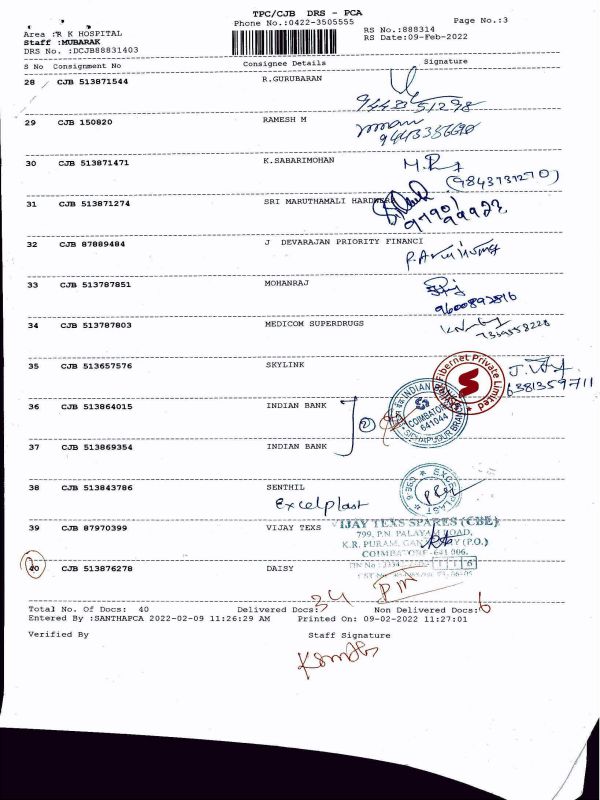 TPC/CJB DRS - PCA
Phone No.:0422-3505555
Page No.:3
Area :R K HOSPITAL
Staff :MUBARAK
DRS No. :DCJB88831403
RS No.:888314
RS Date:09-Feb-2022
S No Consignment No Consignee Details Signature
28 CJB 513871544 R.GURUBARAN
29 CJB 150820 RAMESH M
30 CJB 513871471 K.SABARIMOHAN
(9843731270)
31 CJB 513871274 SRI MARUTHAMALI HARDWERE
32 CJB 87889484 J DEVARAJAN PRIORITY FINANCI
33 CJB 513787851 MOHANRAJ
9600892816
34 CJB 513787803 MEDICOM SUPERDRUGS
35 CJB 513657576 SKYLINK
Fibernet Private Limited
6381359711
36 CJB 513864015 INDIAN BANK
2
INDIAN
COIMBATORE
641044
37 CJB 513869354 INDIAN BANK
38 CJB 513843786 SENTHIL
Excelplast
39 CJB 87970399 VIJAY TEXS
VIJAY TEXS SPARES (CBE)
799, P.N. PALAYAM ROAD,
K.R. PURAM, (P.O.)
COIMBATORE -641 006.
40 CJB 513876278 DAISY
Total No. Of Docs: 40 Delivered Docs: 34 Non Delivered Docs: 6
Entered By :SANTHAPCA 2022-02-09 11:26:29 AM Printed On: 09-02-2022 11:27:01
Verified By Staff Signature